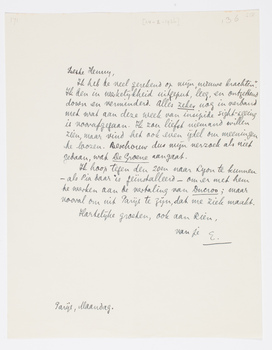 Beste Henny,
Ik heb te veel gerekend op mijn "nieuwe krachten".
Ik ben in werkelijkheid uitgeput, leeg, en ontzettend
down en verminderd. Alles zeker nog in verband
met wat aan deze week van insipide sight-seeing
is voorafgegaan. Ik zou liefst niemand willen
zien, maar vind het ook even ijdel om meeningen
te lozen. Beschouw dus mijn verzoek als niet
gedaan, wat De Groene aangaat.
Ik hoop tegen den 20en naar Lyon te kunnen
– als Pia daar is geïnstalleerd – om er met hem
te werken aan de vertaling van Ducroo; maar
vooral om uit Parijs te zijn, dat me ziek maakt.
Hartelijke groeten, ook aan Rien,
van je E.
Parijs, Maandag.